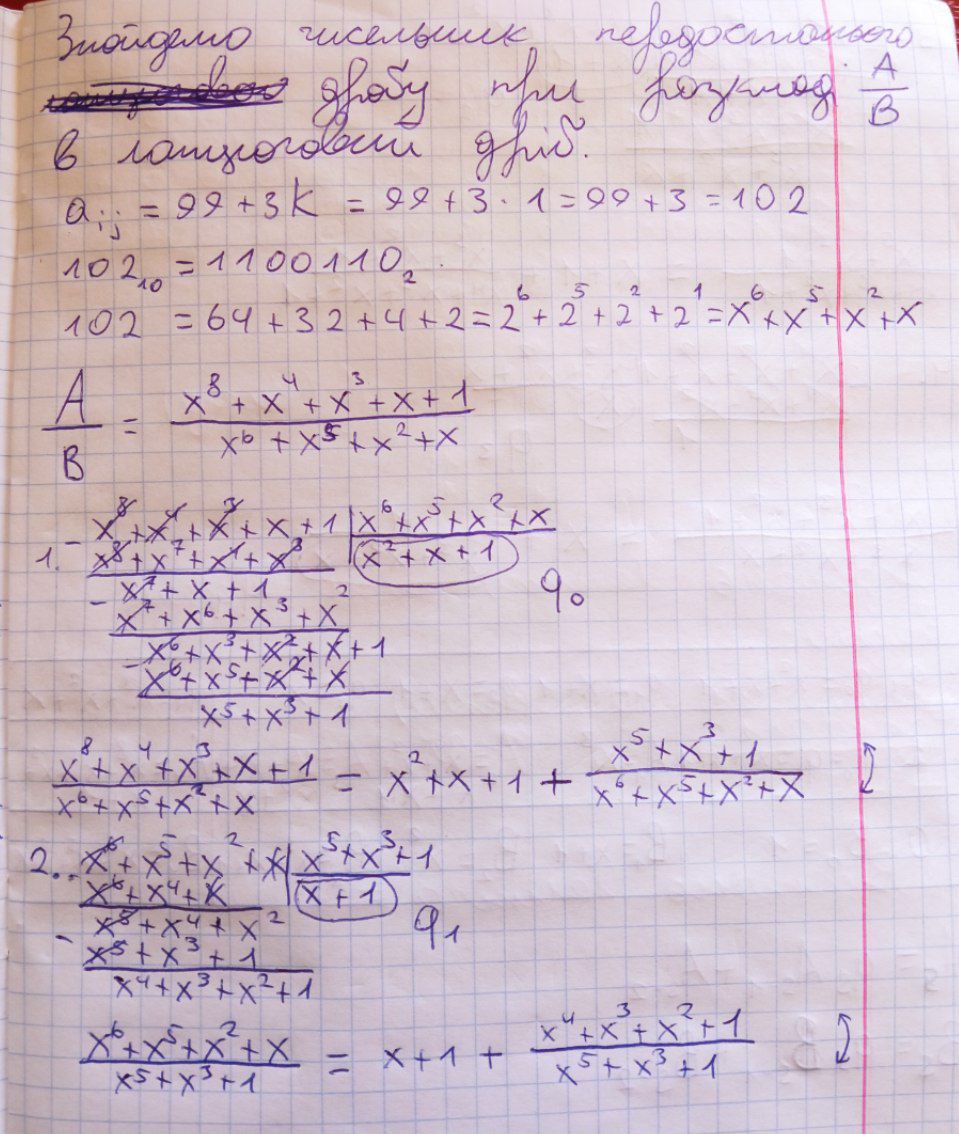 Знайдемо чисельник передостанього
дробу при розкладі A/B
в ланцюговий дріб.
a_{ij} = 99 + 3k = 99 + 3 · 1 = 99 + 3 = 102
102_{10} = 1100110_2.
102 = 64 + 32 + 4 + 2 = 2^6 + 2^5 + 2^2 + 2^1 = x^6 + x^5 + x^2 + x
A/B = (x^8 + x^4 + x^3 + x + 1)/(x^6 + x^5 + x^2 + x)
1. - x^8 + x^4 + x^3 + x + 1 | x^6 + x^5 + x^2 + x
x^8 + x^7 + x^4 + x^3 | x^2 + x + 1 q_0
- x^7 + x + 1
x^7 + x^6 + x^3 + x^2
- x^6 + x^3 + x^2 + x + 1
x^6 + x^5 + x^2 + x
x^5 + x^3 + 1
(x^8 + x^4 + x^3 + x + 1)/(x^6 + x^5 + x^2 + x) = x^2 + x + 1 + (x^5 + x^3 + 1)/(x^6 + x^5 + x^2 + x)
2. - x^6 + x^5 + x^2 + x | x^5 + x^3 + 1
x^6 + x^4 + x | x + 1 q_1
- x^5 + x^4 + x^2
x^5 + x^3 + 1
x^4 + x^3 + x^2 + 1
(x^6 + x^5 + x^2 + x)/(x^5 + x^3 + 1) = x + 1 + (x^4 + x^3 + x^2 + 1)/(x^5 + x^3 + 1)